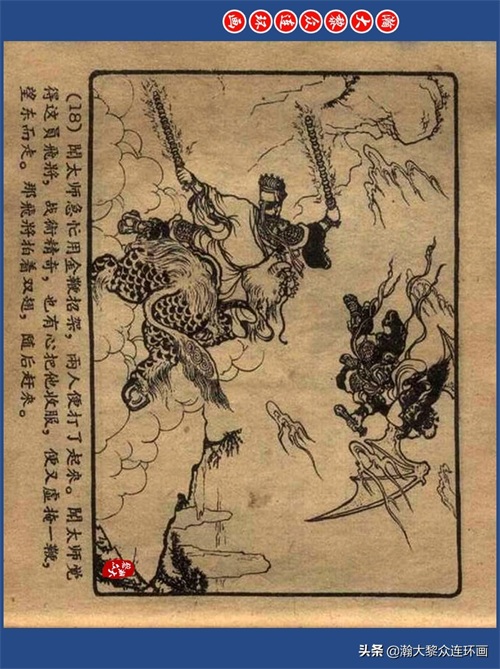 瀚大黎众连环画
(18) 聞太师急忙用金鞭招架，兩人便打了起来。聞太师觉
得这員飛將，战術精奇，也有心把他收服，便又虚掩一鞭，
望东而走。那飛將拍着双翅，随后赶来。
头条 @瀚大黎众连环画